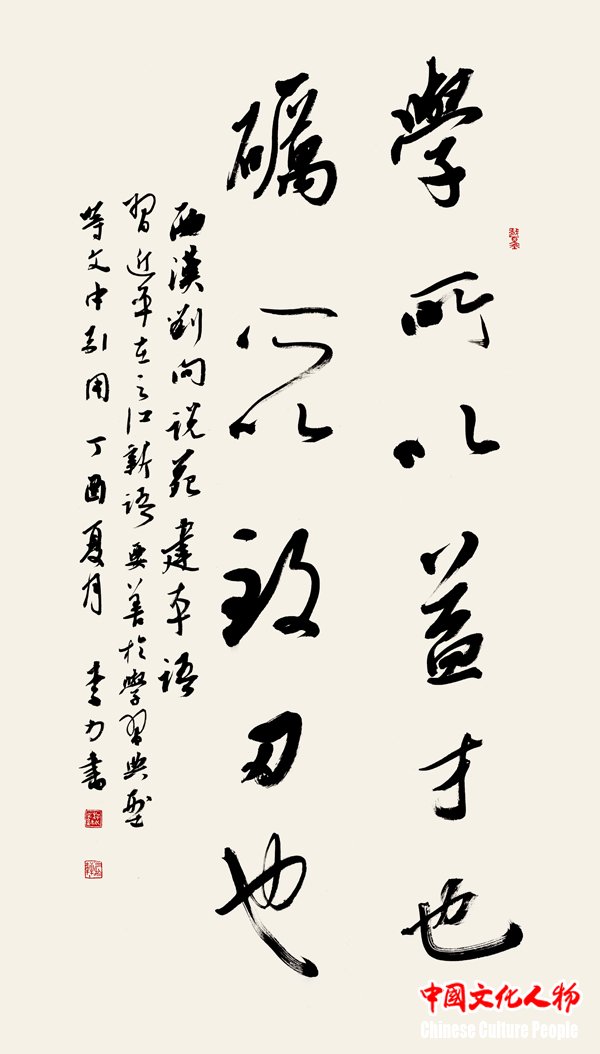 學所以益才也
礪所以致刃也
西漢劉向說苑建本語
習近平在之江新語要善於學習典型
等文中引用 丁酉夏月 李力書
中國文化人物
Chinese Culture People